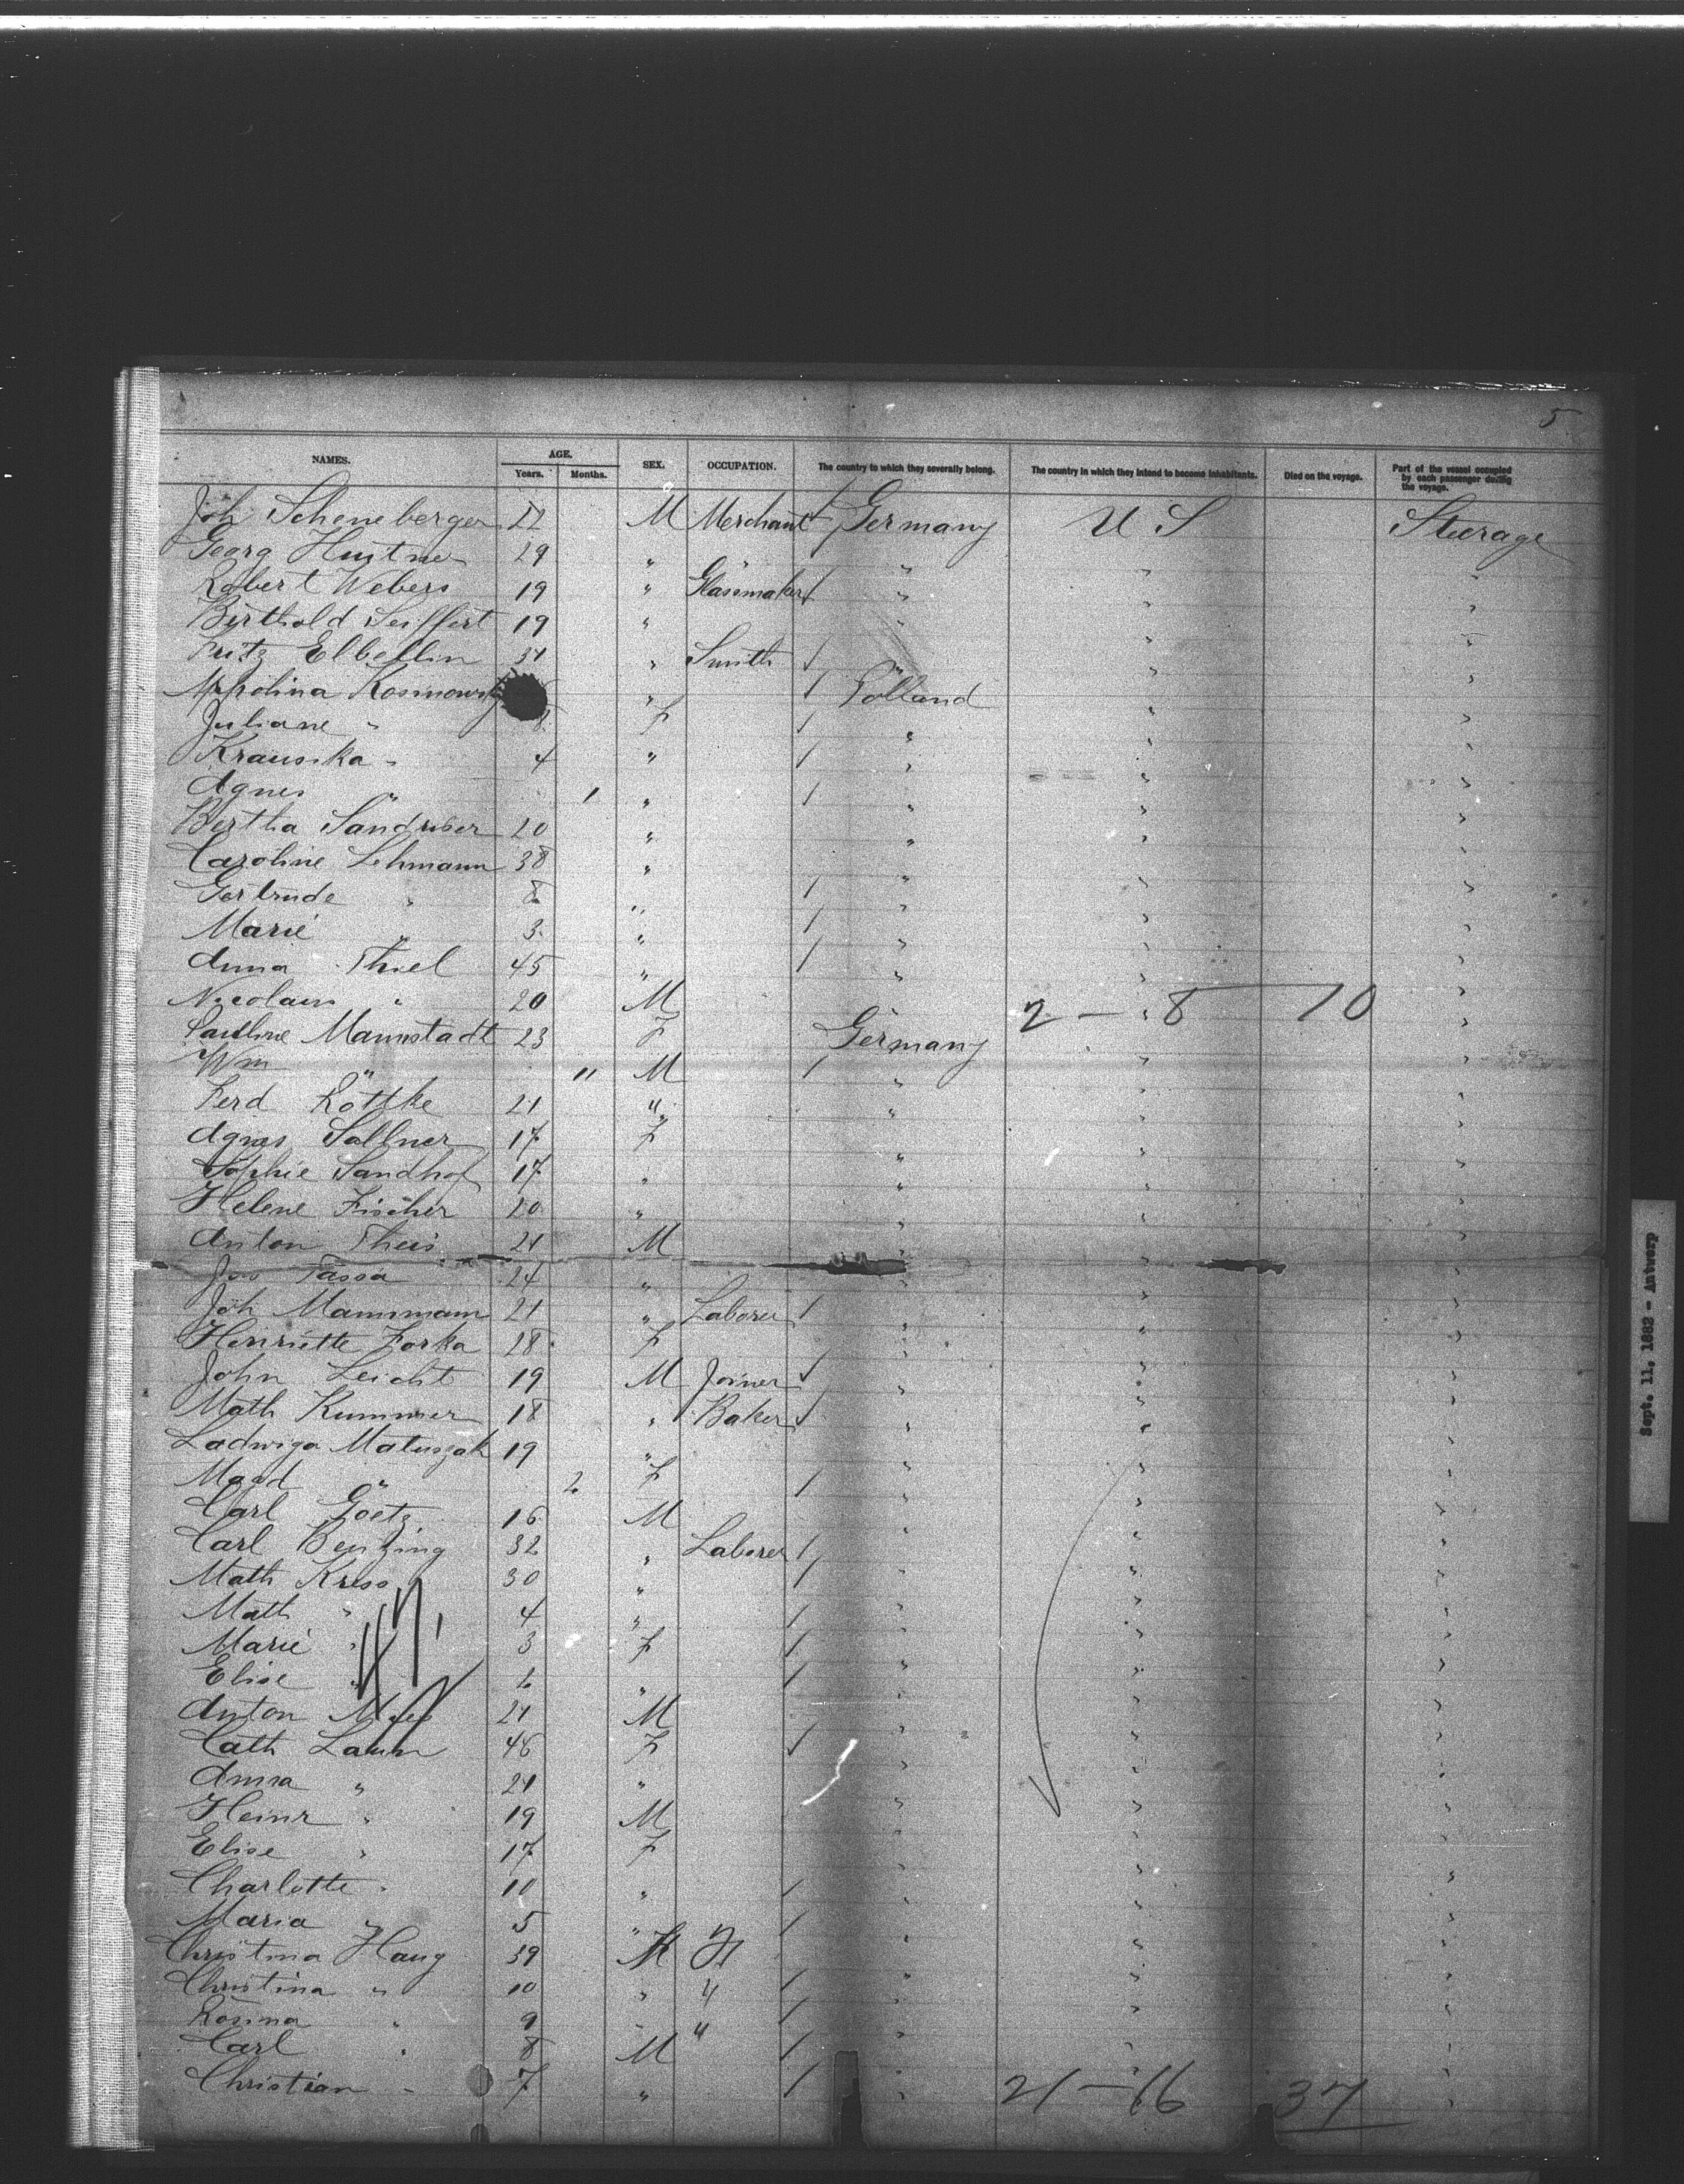 5
NAMES. AGE. Years. Months. SEX. OCCUPATION. The country to which they severally belong. The country in which they intend to become inhabitants. Died on the voyage. Part of the vessel occupied by each passenger during the voyage.
Joh Scheneberger 22 M Merchant Germany U S Steerage
Georg 29 " " " " "
Robert Webers 19 " Glassmaker " " "
Berthold Seiffert 19 " " " "
Fritz Elbellin 31 " Smith " " "
Kosmowsky " Polland " "
Juliane " 8 F " " "
Krausska " 4 " " " "
Agnes " 1 " " " "
Bertha 20 " " " "
Caroline Lehmann 38 " " " "
Gertrude " 8 " " " "
Marie " 3 " " " "
Anna Thiel 45 " " " "
Nicolaus " 20 M " 2 — 8 10 "
Pauline Mannstadt 23 F Germany " "
Wm " 11 M " " "
Ferd Röttke 21 " " " "
Agnes Sallner 17 F " " "
Sophie Sandhof 17 " " " "
Helene Fischer 20 " " " "
Anton Theis 21 M " " "
Jos Tassa 24 " " " "
Joh Mannmann 21 " Laborer " " "
Henriette Forka 18 F " " "
John Leicht 19 M Joiner " " "
Math Kummer 18 " Baker " " "
Ladwiga Matuszak 19 " " " "
" 2 F " " "
Carl Goetz 16 M " " "
Carl Bentzing 32 " Laborer " " "
Math Kriss 30 " " " "
Math " 4 " " " "
Marie " 3 F " " "
Elise " " " " "
Anton 21 M " " "
Cath 46 F " " "
Anna " 21 " " " "
Heinr " 19 M " " "
Elise " 17 F " " "
Charlotte " 10 " " " "
Maria " 5 " " " "
Christina Haug 39 F " " "
Christina " 10 " " " " "
Rosina " 9 " " " " "
Carl " 8 M " " "
Christian " 7 " " 21 — 16 37 "
Sept. 11, 1882 - Antwerp